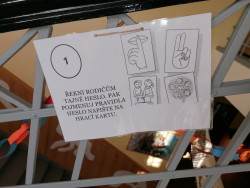 1
ŘEKNI RODIČŮM
TAJNÉ HESLO. PAK
POZMENUJ PRAVIDLA
HESLO NAPIŠTE NA
HRACÍ KARTU.